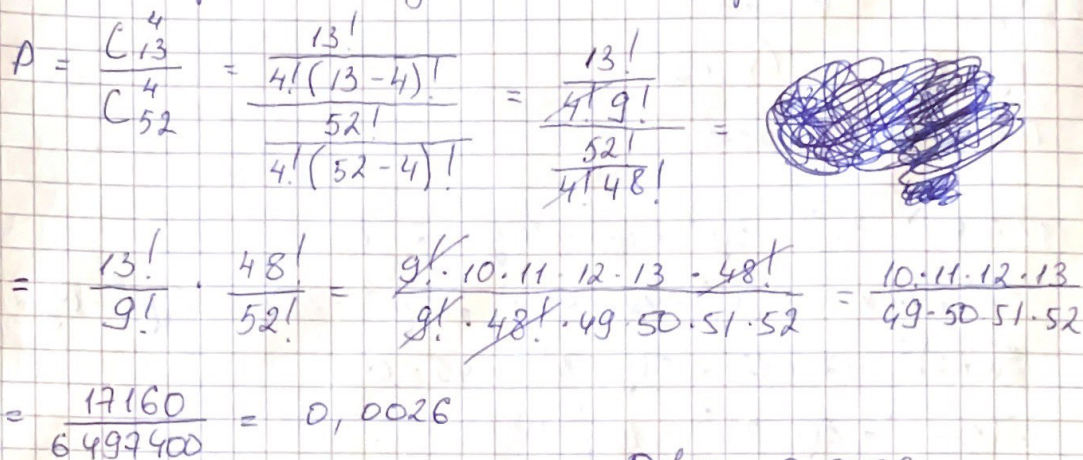 P = C⁴₁₃ / C⁴₅₂ = (13! / 4!(13-4)!) / (52! / 4!(52-4)!) = (13! / 4! 9!) / (52! / 4! 48!) =
= 13!/9! · 48!/52! = (9! · 10 · 11 · 12 · 13 · 48!) / (9! · 48! · 49 · 50 · 51 · 52) = (10 · 11 · 12 · 13) / (49 · 50 · 51 · 52)
= 17160 / 6497400 = 0,0026